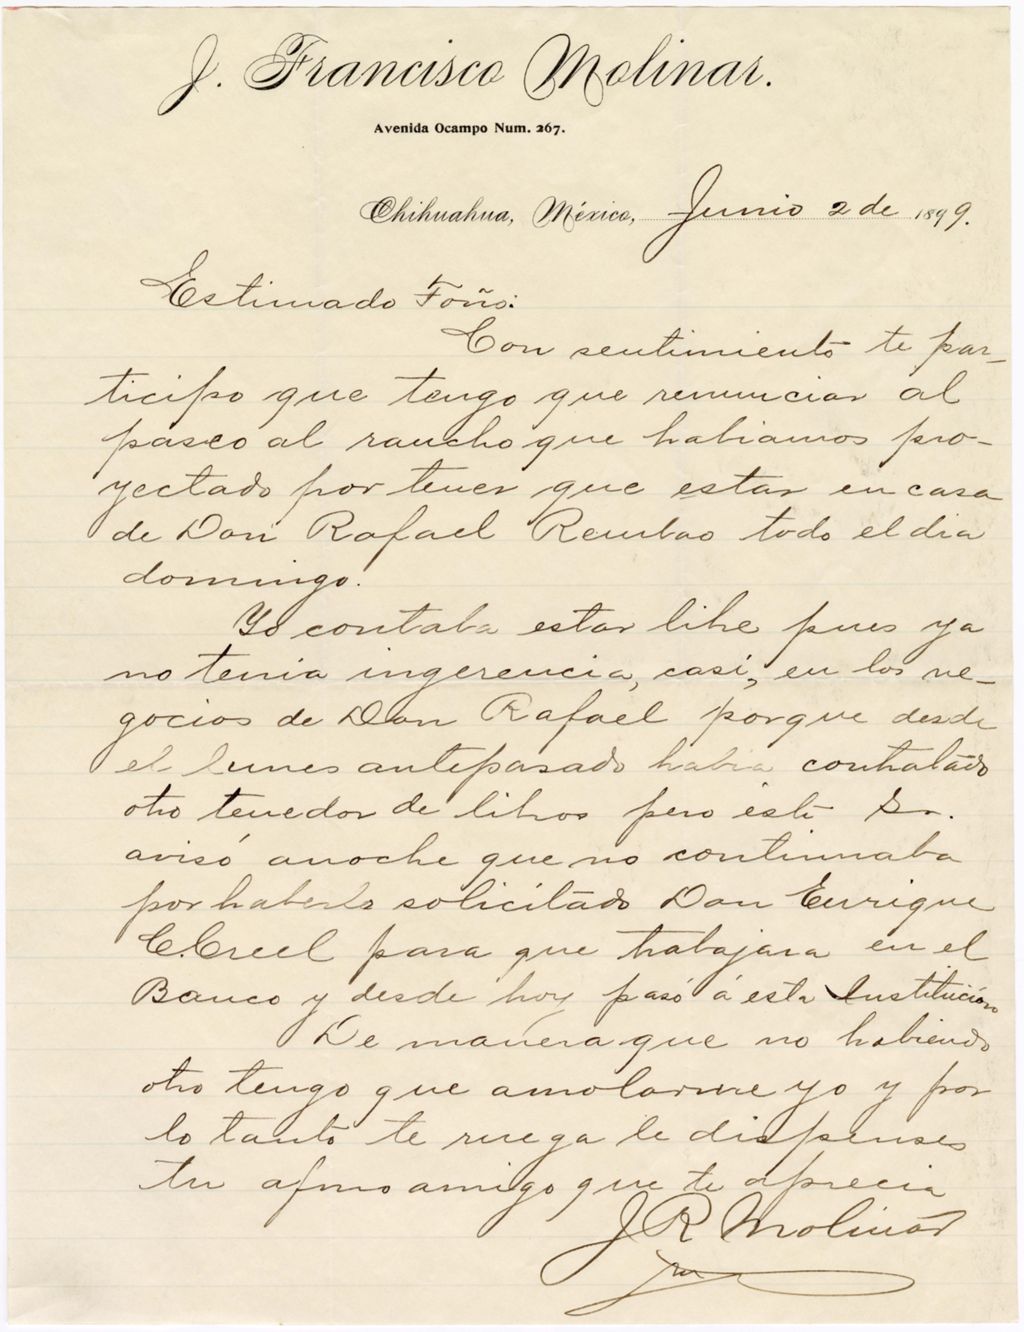 J. Francisco Molinar.
Avenida Ocampo Num. 267.
Chihuahua, México, Junio 2 de 1899.
Estimado Toño:
Con sentimiento te par-
ticipo que tengo que renunciar al
paseo al rancho que habiamos pro-
yectado por tener que estar en casa
de Don Rafael Rembao todo el dia
domingo.
Yo contaba estar libre pues ya
no tenia ingerencia, casi, en los ne-
gocios de Don Rafael porque desde
el lunes antepasado habia contratado
otro tenedor de libros pero éste Sr.
avisó anoche que no continuaba
por haberlo solicitado Don Enrique
C. Creel para que trabajara en el
Banco y desde hoy pasó á esta Institución
De manera que no habiendo
otro tengo que amolarme yo y por
lo tanto te ruega le dispenses
tu afmo amigo que te aprecia
J R Molinar